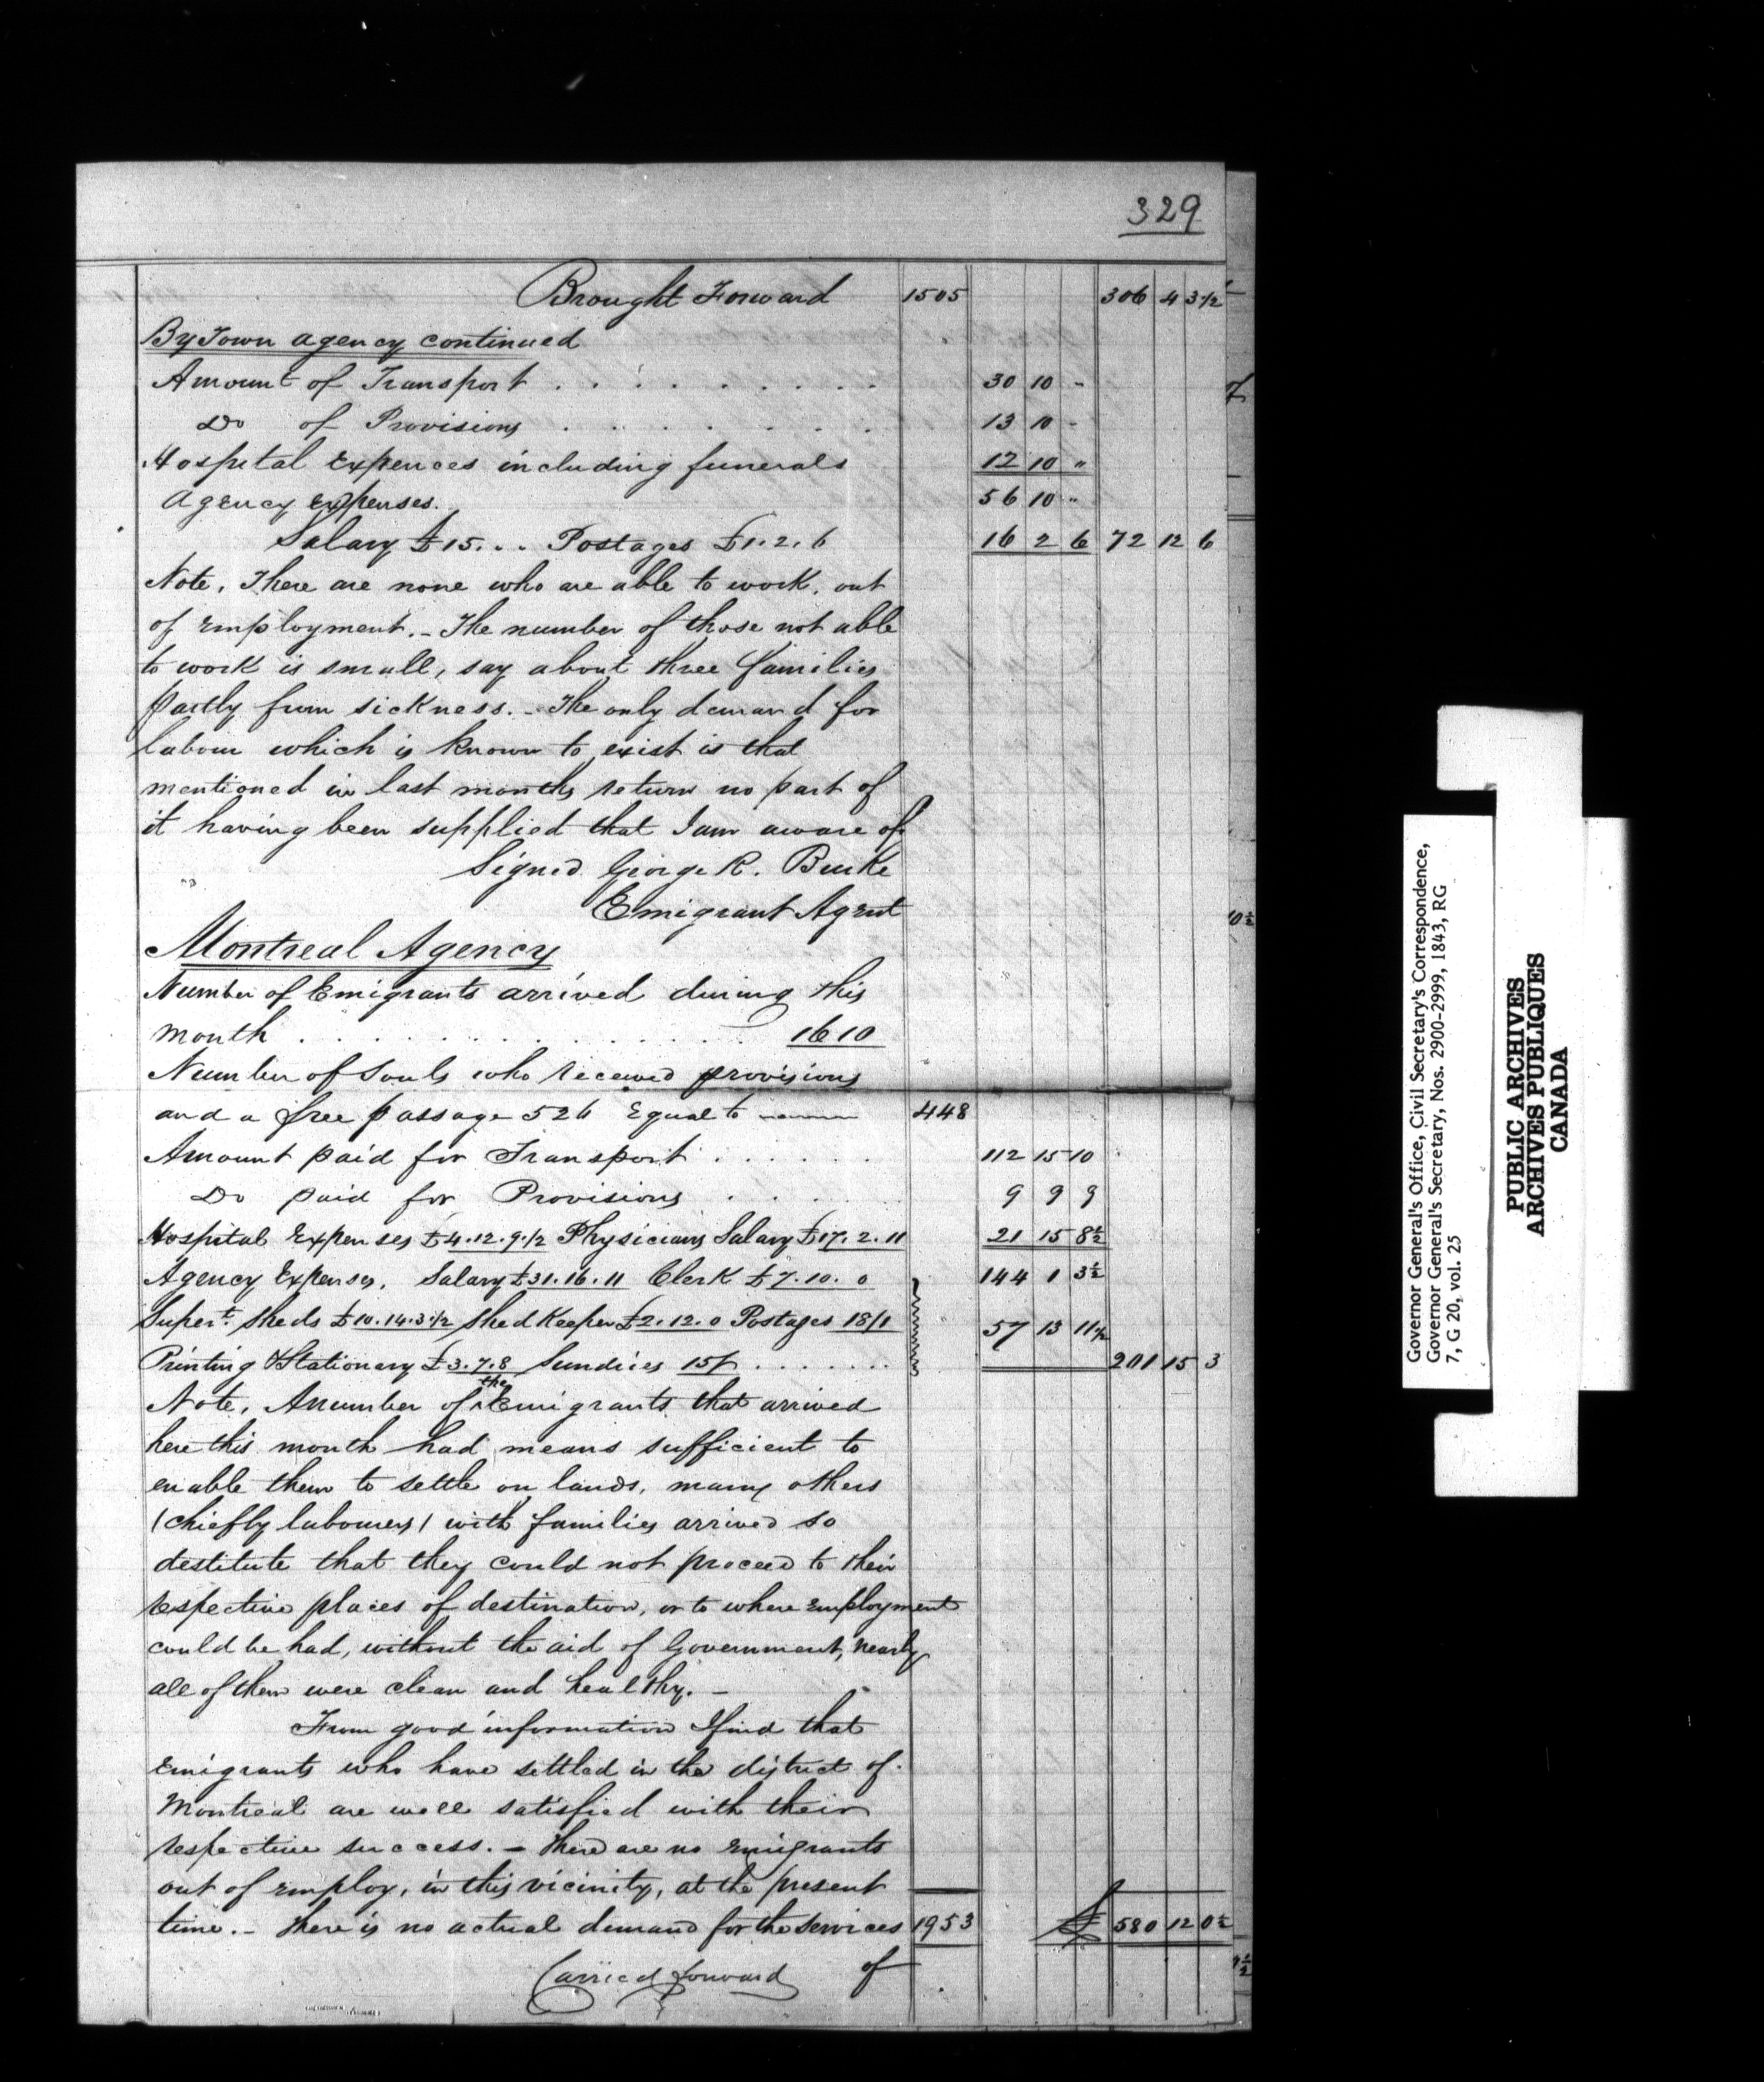 329
Brought Forward 1505 306 4 3½
By Town agency continued
Amount of Transport . . . . . . . . . 30 10 -
Do of Provisions . . . . . . . . 13 10 -
Hospital Expences including funerals 12 10 "
Agency Expenses. 56 10 "
Salary £15... Postages £1.2.6 16 2 6 72 12 6
Note, There are none who are able to work, out
of Employment. - The number of those not able
to work is small, say about three families
partly from sickness. - The only demand for
labour which is known to exist is that
mentioned in last months return no part of
it having been supplied that I am aware of
Signed George R. Burke
Emigrant Agent
Montreal Agency
Number of Emigrants arrived during this
month . . . . . . . . . . . . . . 1610
Number of Souls who received provisions
and a free passage 526 Equal to 448
Amount paid for Transport . . . . . . 112 15 10
Do paid for Provisions . . . . 9 9 9
Hospital Expenses £4.12.9.½ Physicians Salary £17.2.11 21 15 8½
Agency Expenses, Salary £31.16.11 Clerk £7.10.0 144 1 3½
Supert. Sheds £10.14.3½ Shed Keeper £2.12.0 Postages 18/1 57 13 11½
Printing & Stationary £3.7.8 Sundries 15/ . . . . . . . 201 15 3
Note, A number of the Emigrants that arrived
here this month had means sufficient to
enable them to settle on lands, many others
(chiefly labourers) with families arrived so
destitute that they could not proceed to their
respective places of destination, or to where Employment
could be had, without the aid of Government, nearly
all of them were clean and healthy. -
From good information I find that
Emigrants who have settled in the district of
Montreal are well satisfied with their
respective success. - There are no Emigrants
out of employ, in this vicinity, at the present
time. - There is no actual demand for the services 1953 £ 580 12 0½
Carried forward of
Governor General's Office, Civil Secretary's Correspondence,
Governor General's Secretary, Nos. 2900-2999, 1843, RG
7, G 20, vol. 25
PUBLIC ARCHIVES
ARCHIVES PUBLIQUES
CANADA